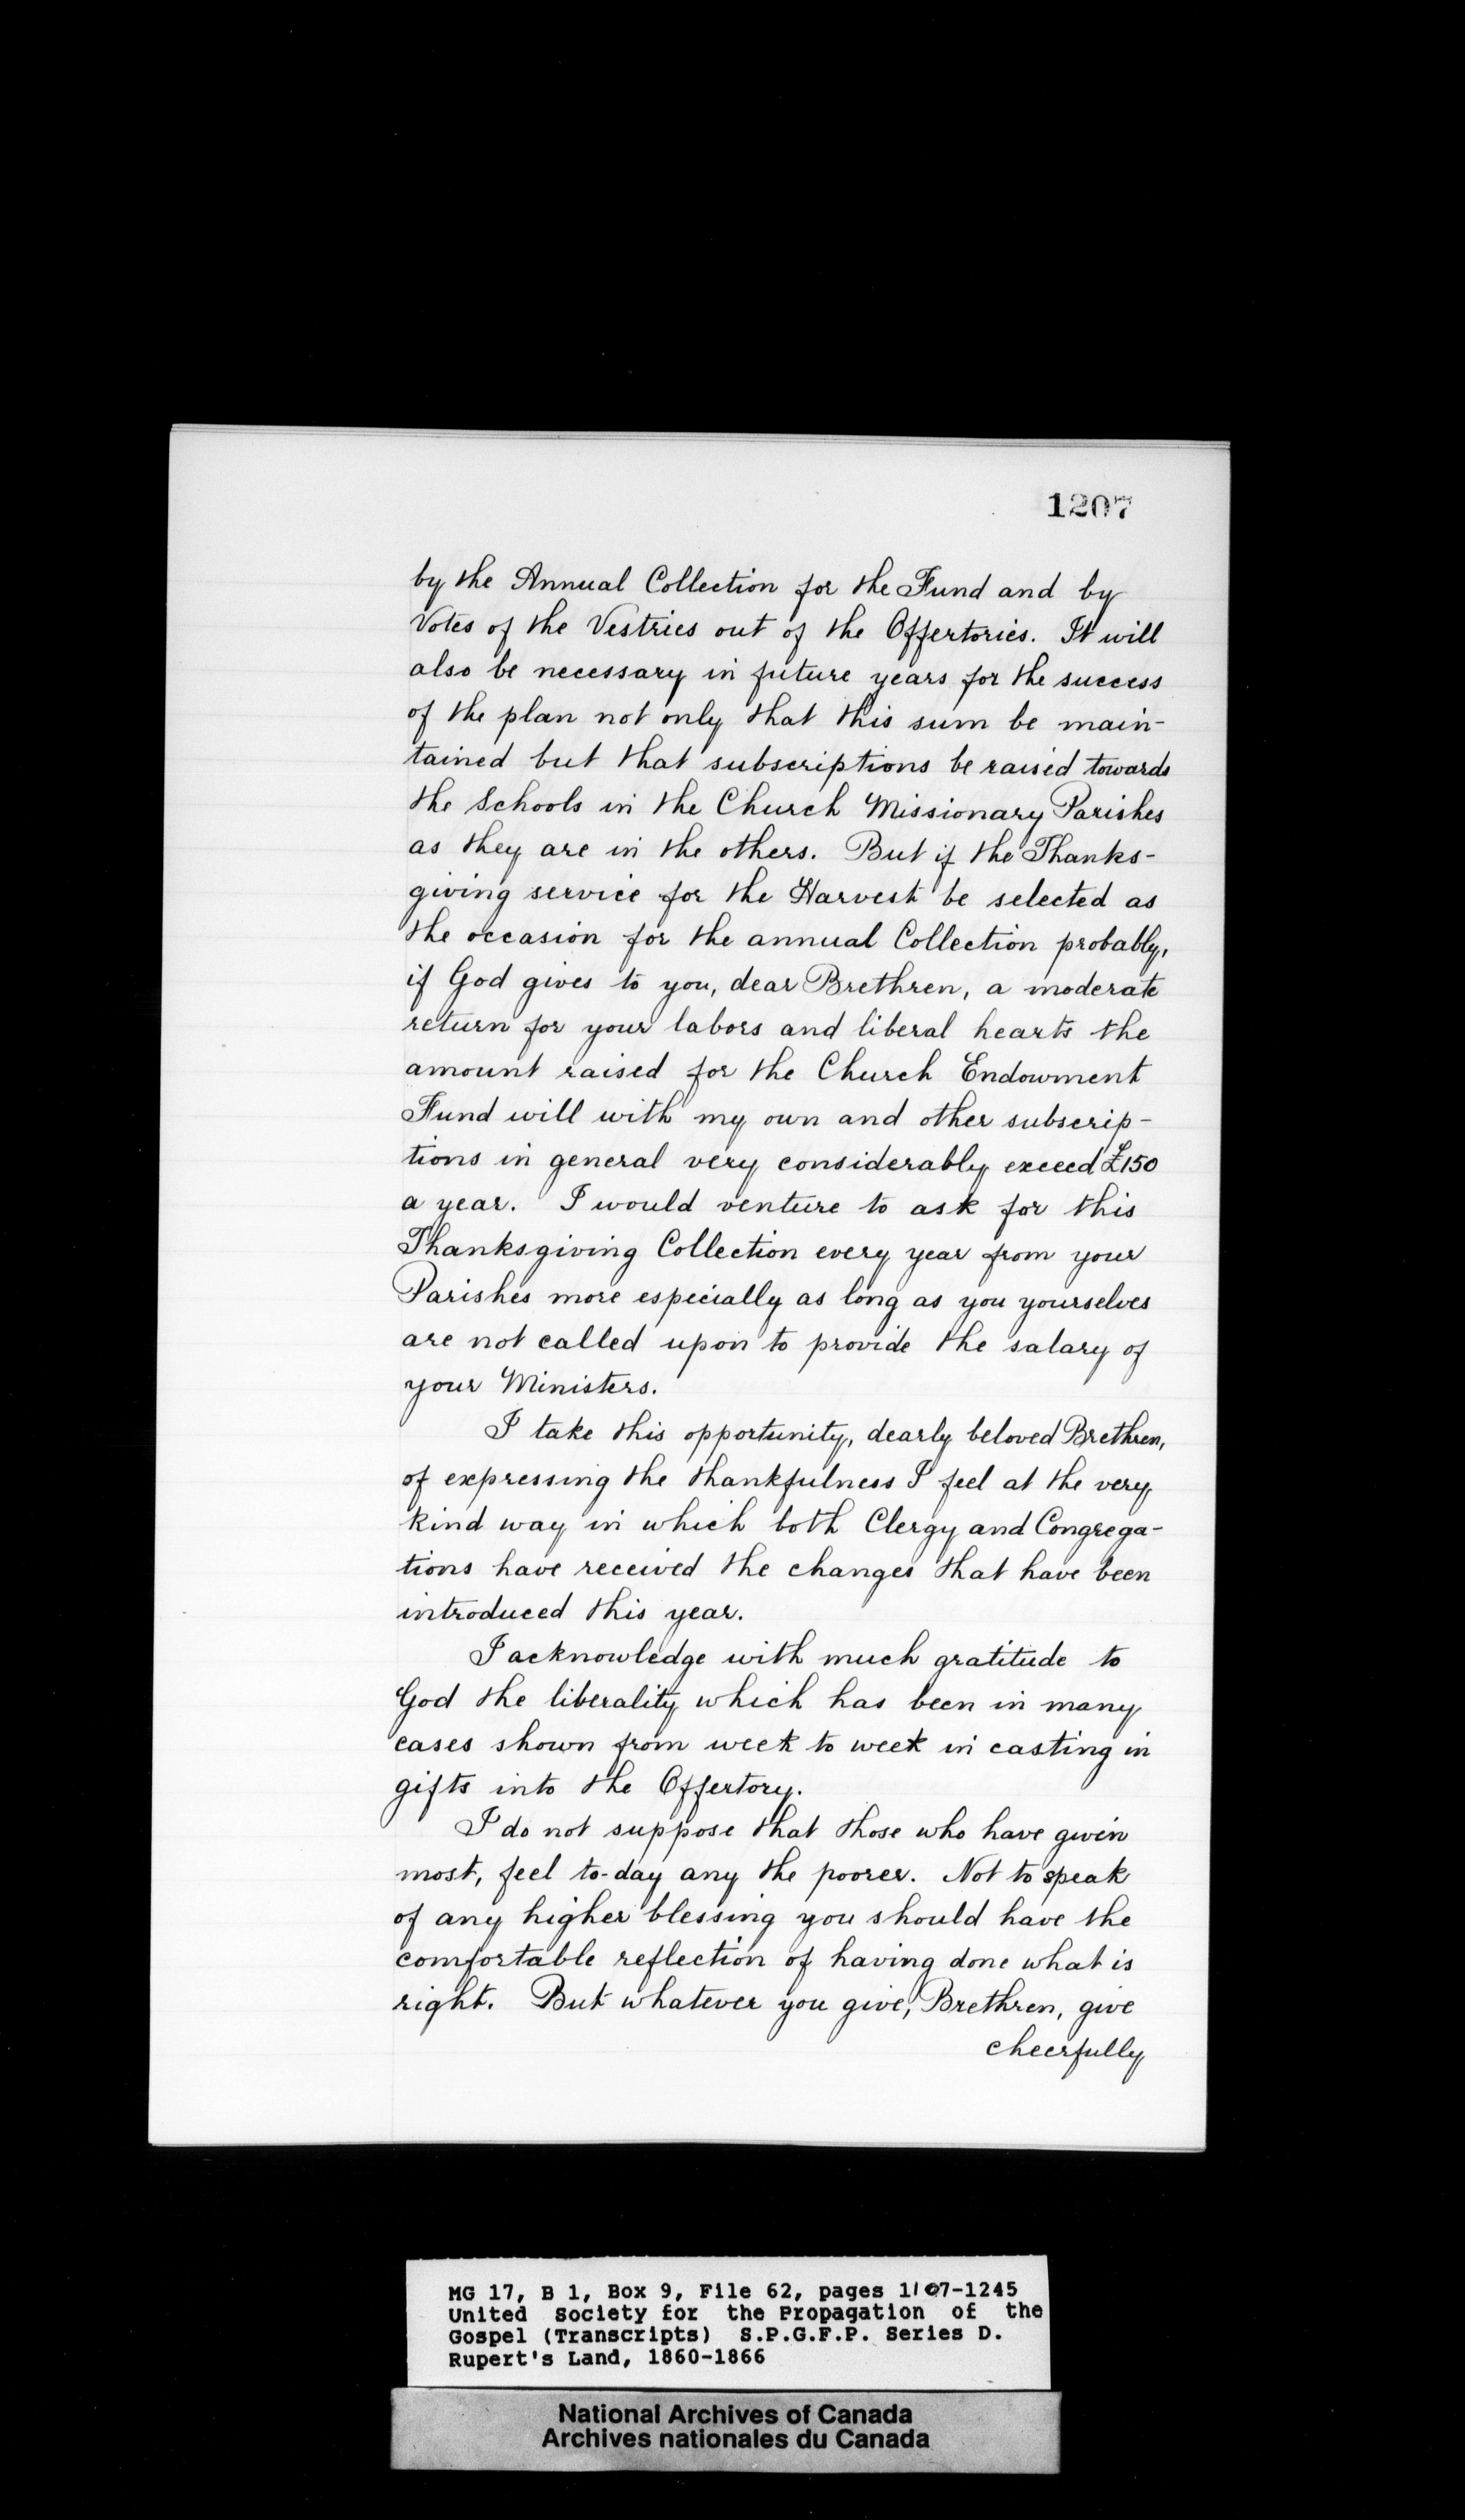 1207
by the Annual Collection for the Fund and by
Votes of the Vestries out of the Offertories. It will
also be necessary in future years for the success
of the plan not only that this sum be main-
tained but that subscriptions be raised towards
the Schools in the Church Missionary Parishes
as they are in the others. But if the Thanks-
giving service for the Harvest be selected as
the occasion for the annual Collection probably,
if God gives to you, dear Brethren, a moderate
return for your labors and liberal hearts the
amount raised for the Church Endowment
Fund will with my own and other subscrip-
tions in general very considerably exceed £150
a year. I would venture to ask for this
Thanksgiving Collection every year from your
Parishes more especially as long as you yourselves
are not called upon to provide the salary of
your Ministers.
I take this opportunity, dearly beloved Brethren,
of expressing the thankfulness I feel at the very
kind way in which both Clergy and Congrega-
tions have received the changes that have been
introduced this year.
I acknowledge with much gratitude to
God the liberality which has been in many
cases shown from week to week in casting in
gifts into the Offertory.
I do not suppose that those who have given
most, feel to-day any the poorer. Not to speak
of any higher blessing you should have the
comfortable reflection of having done what is
right. But whatever you give, Brethren, give
cheerfully
MG 17, B 1, Box 9, File 62, pages 1107-1245
United Society for the Propagation of the
Gospel (Transcripts) S.P.G.F.P. Series D.
Rupert's Land, 1860-1866
National Archives of Canada
Archives nationales du Canada